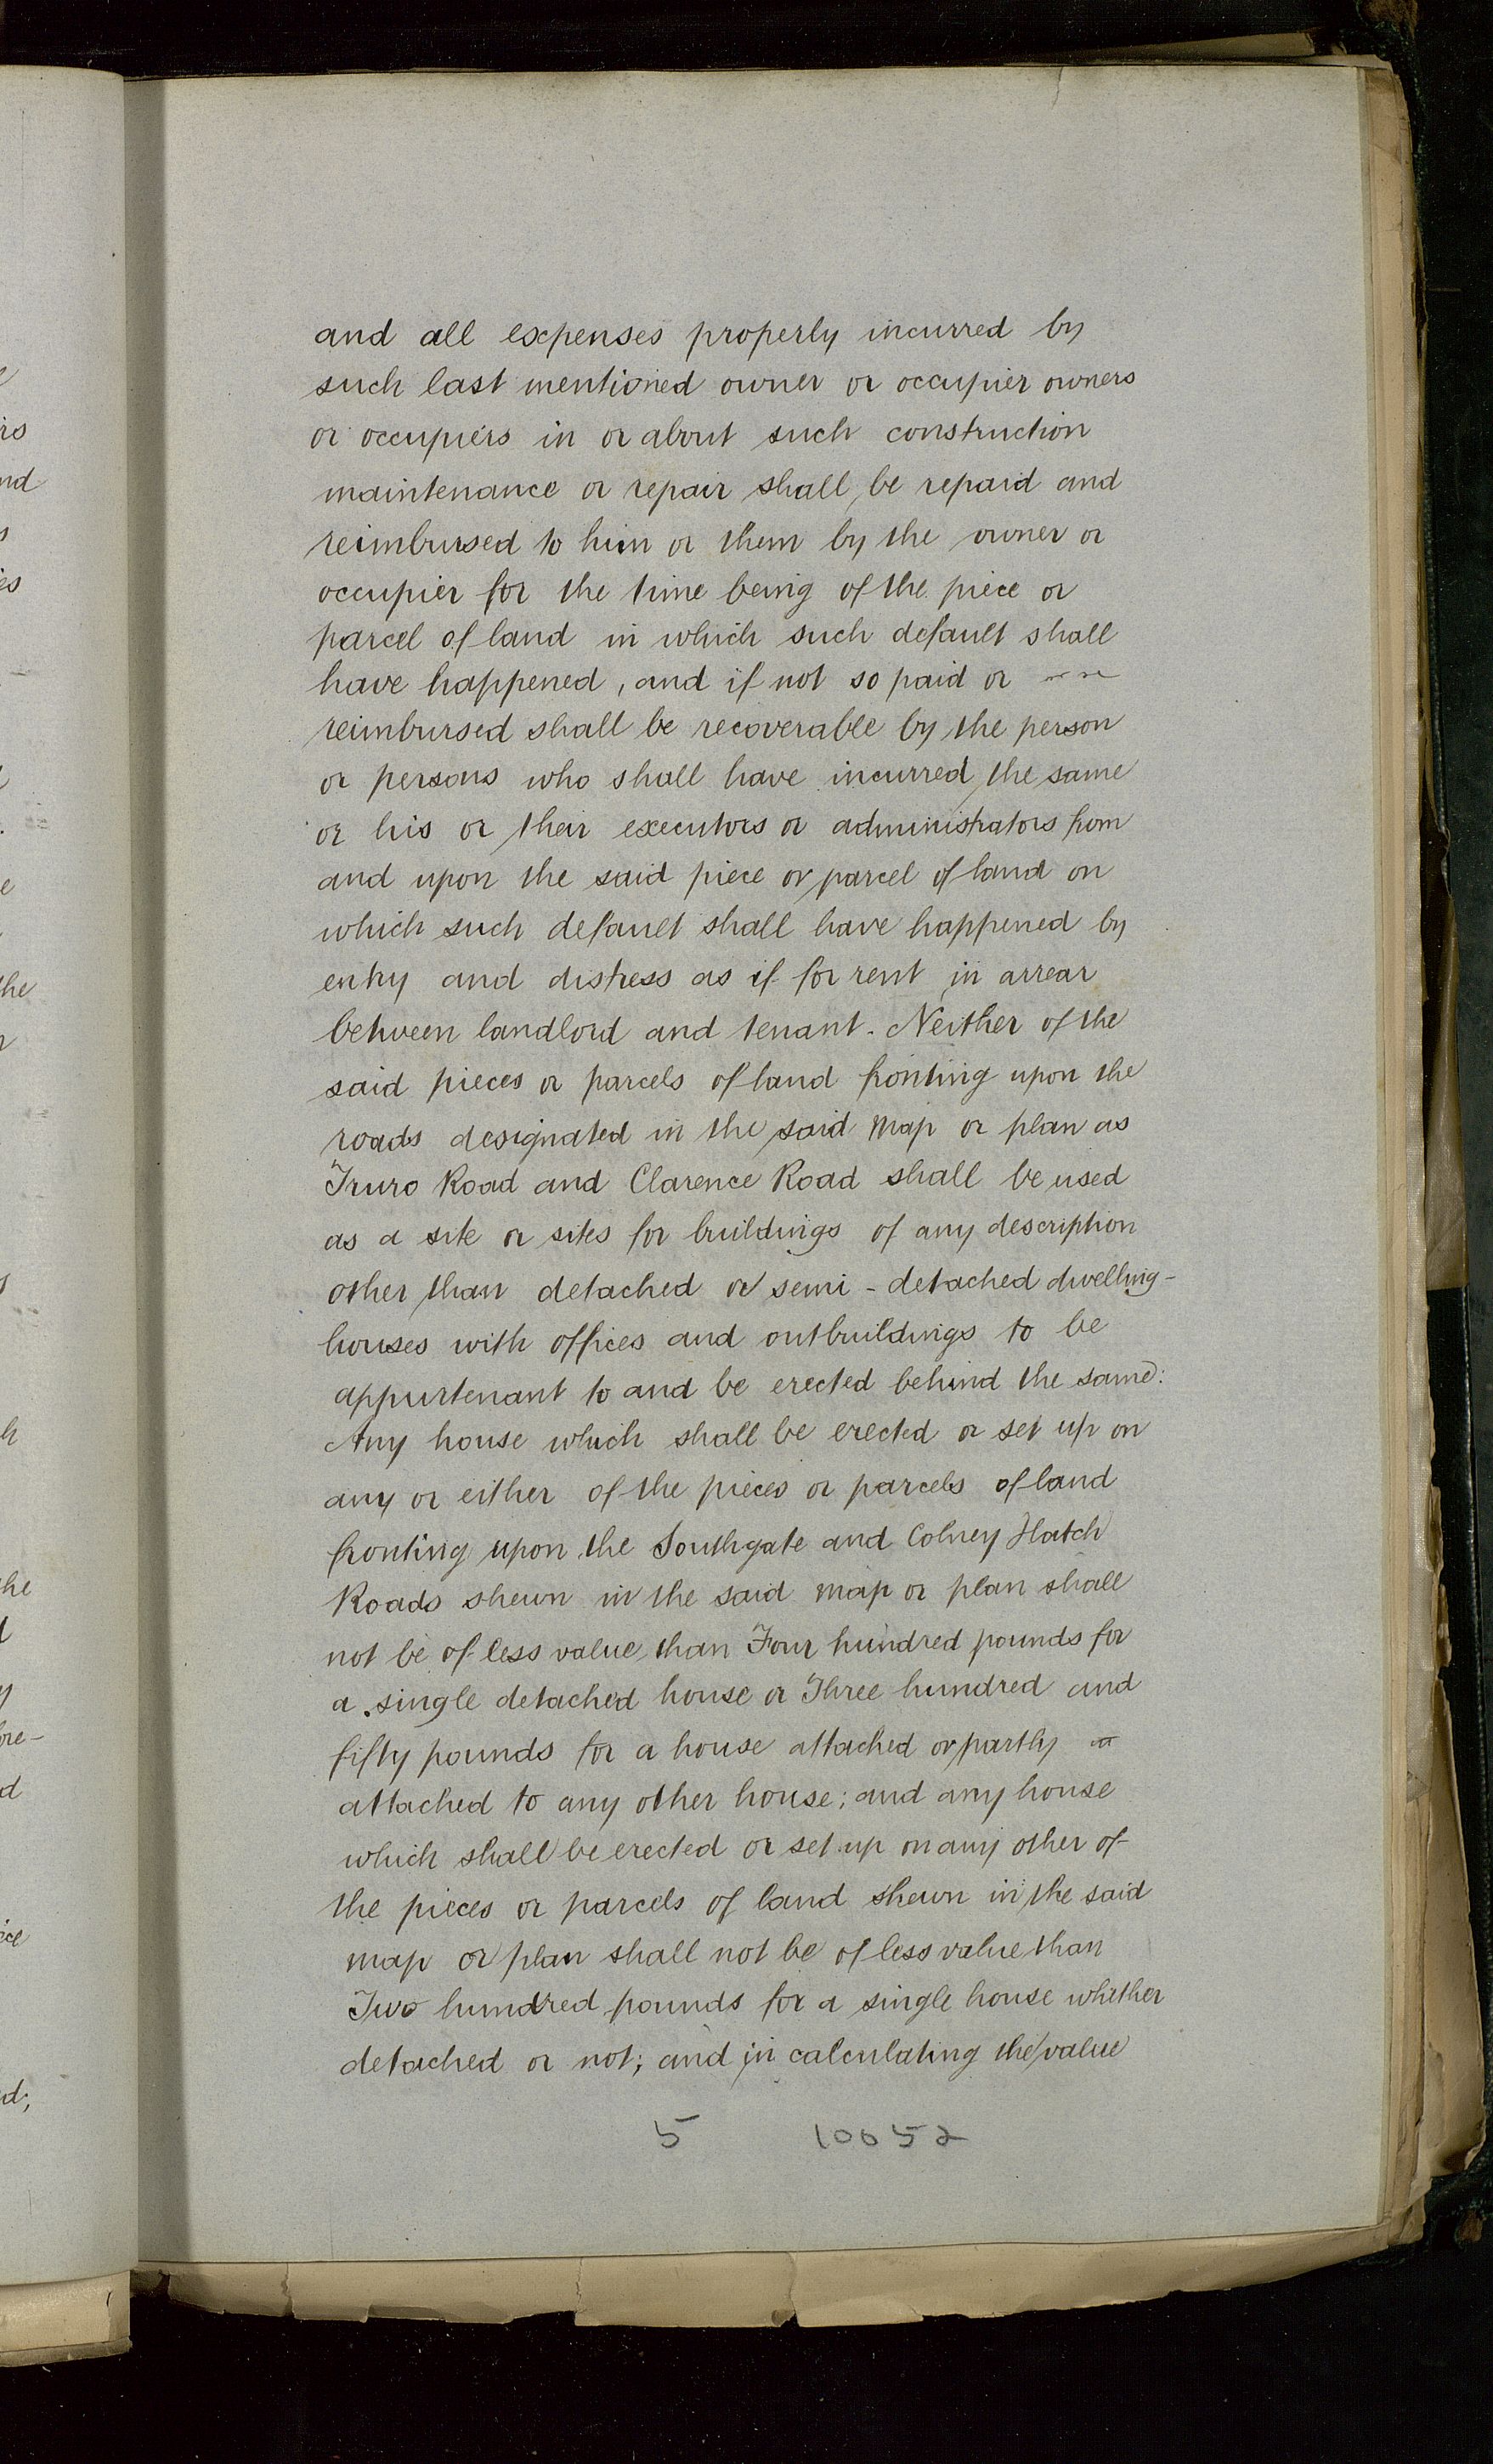 and all expenses properly incurred by
such last mentioned owner or occupier owners
or occupiers in or about such construction
maintenance or repair shall be repaid and
reimbursed to him or them by the owner or
occupier for the time being of the piece or
parcel of land in which such default shall
have happened, and if not so paid or
reimbursed shall be recoverable by the person
or persons who shall have incurred the same
or his or their executors or administrators from
and upon the said piece or parcel of land on
which such default shall have happened by
entry and distress as if for rent in arrear
between landlord and tenant. Neither of the
said pieces or parcels of land fronting upon the
roads designated in the said Map or plan as
Truro Road and Clarence Road shall be used
as a site or sites for buildings of any description
other than detached or semi-detached dwelling-
houses with offices and outbuildings to be
appurtenant to and be erected behind the same:
Any house which shall be erected or set up on
any or either of the pieces or parcels of land
fronting upon the Southgate and Colney Hatch
Roads shewn in the said map or plan shall
not be of less value than Four hundred pounds for
a single detached house or Three hundred and
fifty pounds for a house attached or partly
attached to any other house; and any house
which shall be erected or set up on any other of
the pieces or parcels of land shewn in the said
map or plan shall not be of less value than
Two hundred pounds for a single house whether
detached or not; and in calculating the value
5 10052